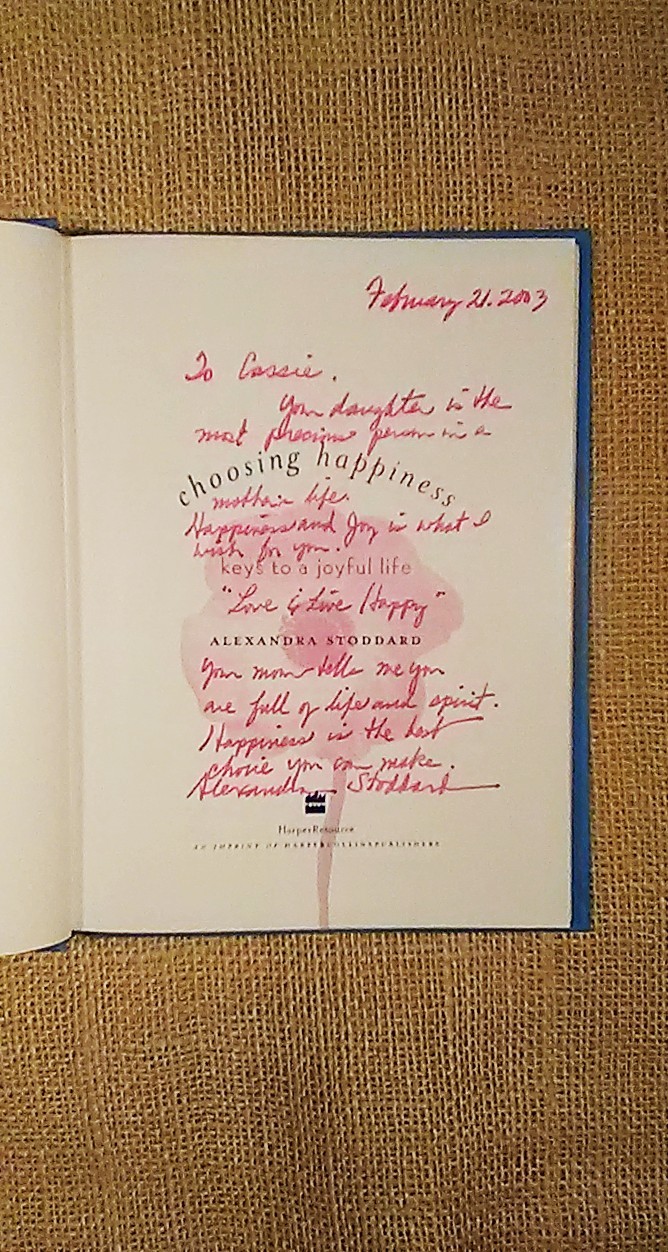 February 21. 2003
To Cassie.
Your daughter is the
most precious person in a
choosing happiness
mother's life.
Happiness and Joy is what I
wish for you.
keys to a joyful life
"Love & Live Happy"
ALEXANDRA STODDARD
Your mom tells me you
are full of life and spirit.
Happiness is the best
choice you can make.
Alexandra Stoddard
HarperResource
AN IMPRINT OF HARPERCOLLINSPUBLISHERS